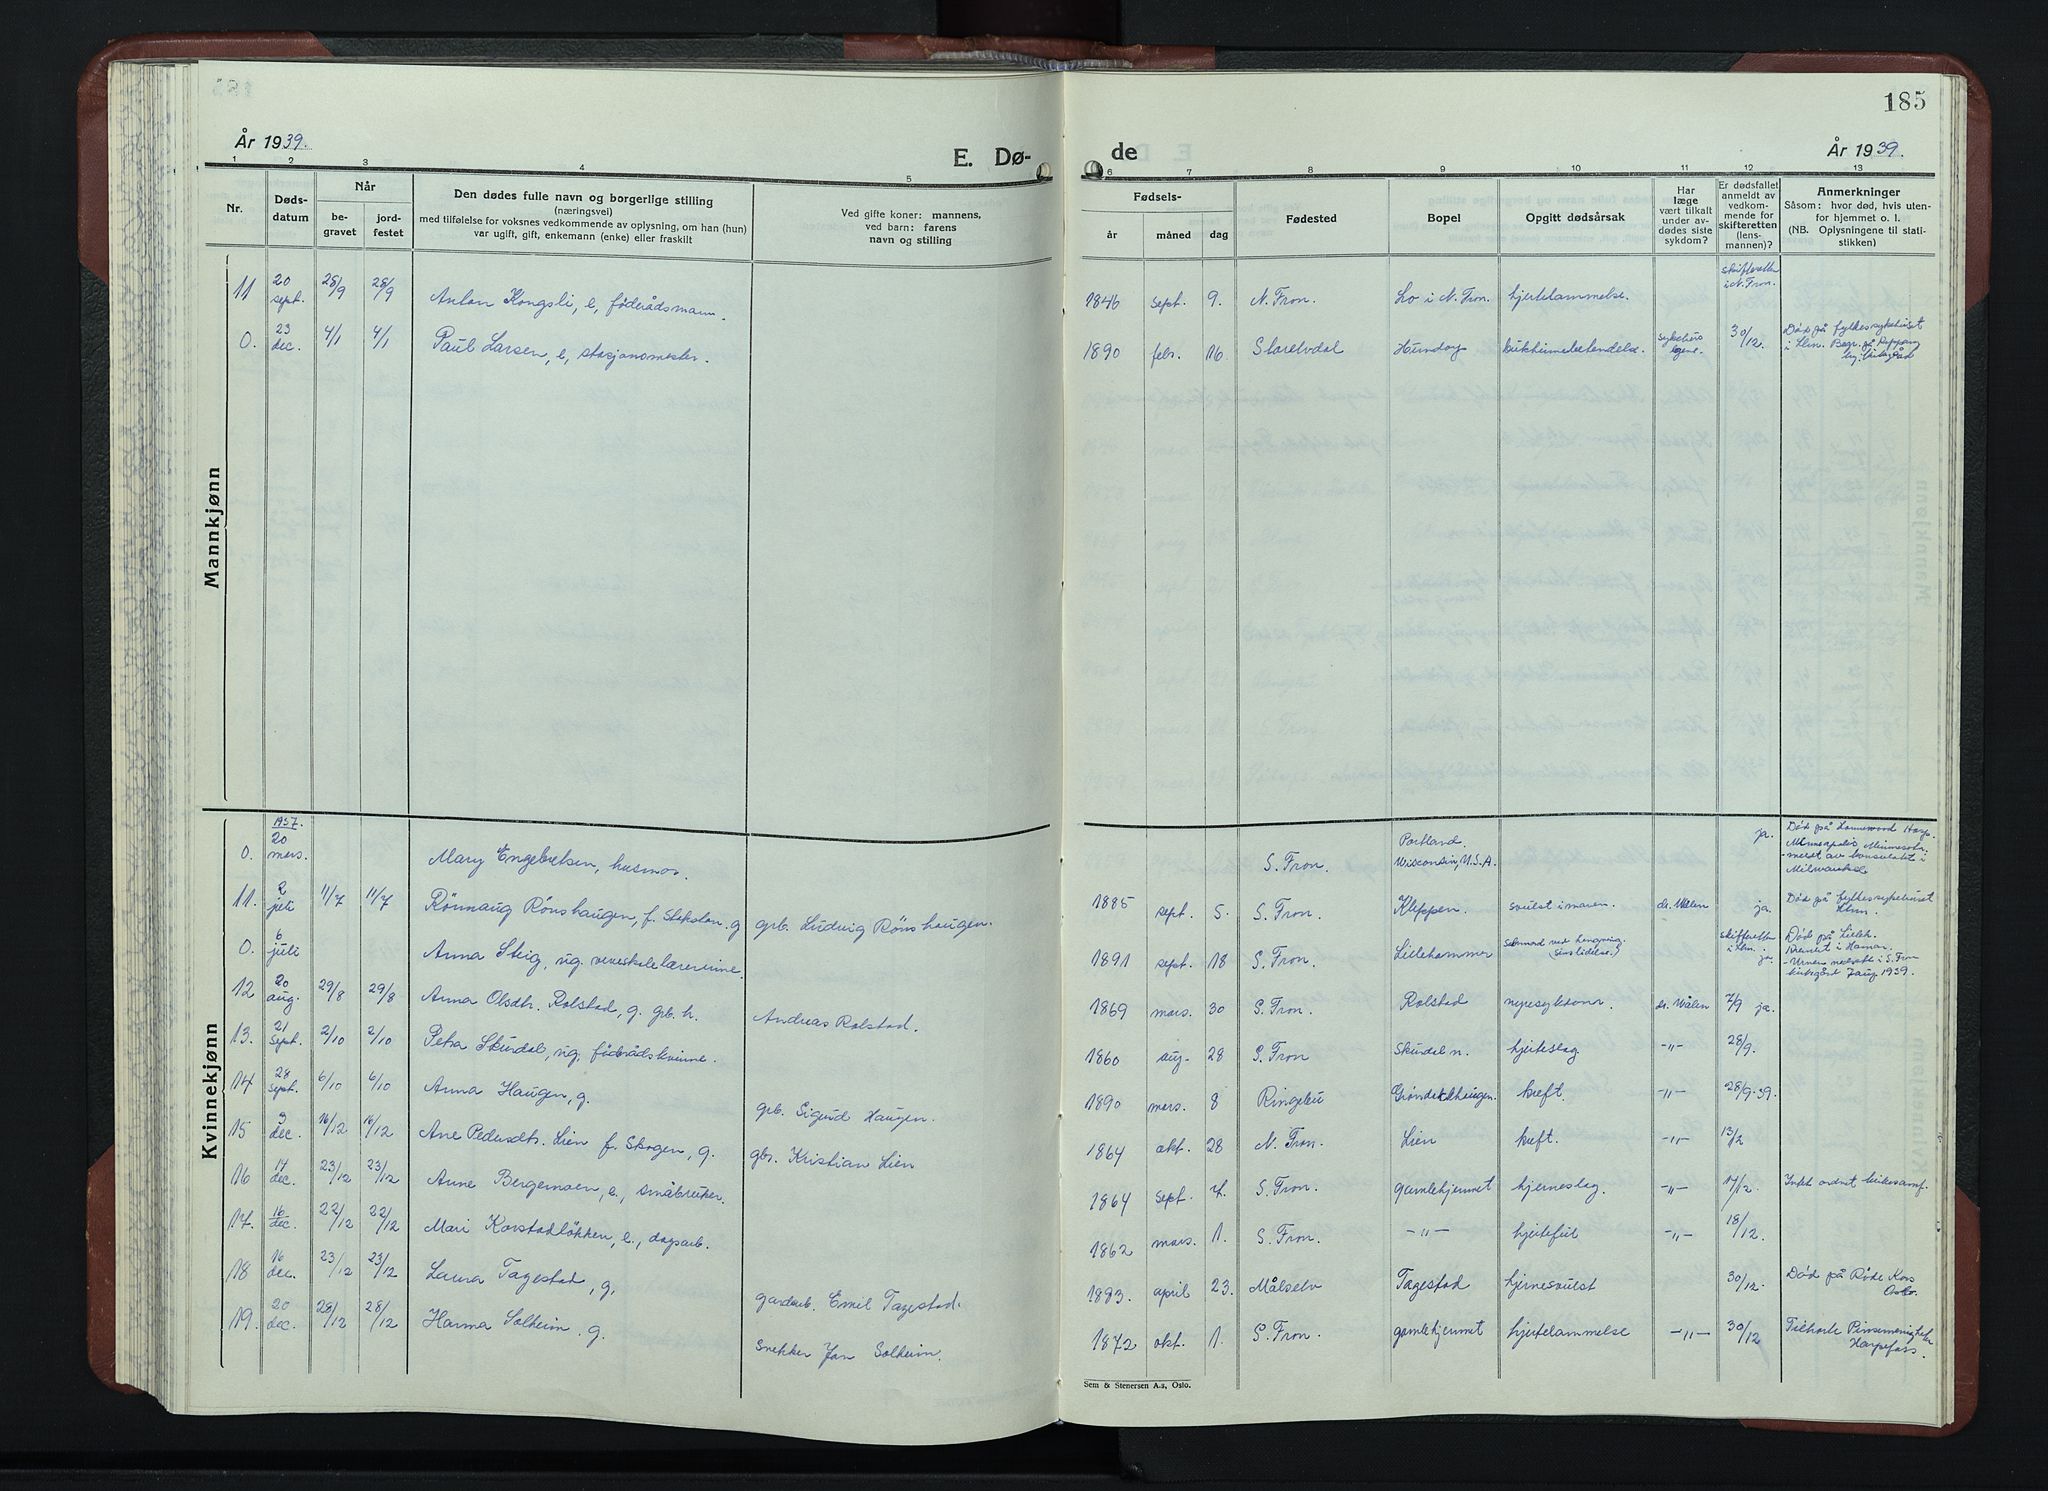 185
År 1939.
E. Dø-
de
År 1939.
1 2 3 4 5 6 7 8 9 10 11 12 13
Nr.
Døds-
datum
Når
be-
gravet
jord-
festet
Den dødes fulle navn og borgerlige stilling
(næringsvei)
med tilføielse for voksnes vedkommende av oplysning, om han (hun)
var ugift, gift, enkemann (enke) eller fraskilt
Ved gifte koner: mannens,
ved barn: farens
navn og stilling
Fødsels-
år måned dag
Fødested
Bopel
Opgitt dødsårsak
Har
læge
vært tilkalt
under av-
dødes siste
sykdom?
Er dødsfallet
anmeldt av
vedkom-
mende for
skifteretten
(lens-
mannen)?
Anmerkninger
Såsom: hvor død, hvis uten-
for hjemmet o. l.
(NB. Oplysningene til stati-
stikken)
Mannkjønn
11 20 sept. 28/9 28/9 Anton Kongsli, e, föderådsmann. 1846 sept. 9. N. Fron. Lo i N. Fron. hjertelammelse. skifteretten i N. Fron.
0. 23 dec. 4/1 4/1 Paul Larsen, e, stasjonsmester. 1890 febr. 16 Hundorp 30/12. Død på fylkessykehuset
i Lhm. Begr. på
Kvinnekjønn
1937.
0. 20 mars. Mary Engebretsen, husmor. S. Fron. Portland. Wisconsin, U.S.A. ja. Død på
Minneapolis, Minnesota.
- meldt av konsulatet i
Milwaukee
11. 2 juli 11/7 11/7 Rönnaug Rönshaugen, f. g grb. Ludvig Rönshaugen. 1885 sept. 5. S. Fron. Kleppen. svulst i maven. dr. Wålen ja. Død på fylkessykehuset
Lhm.
0. 6 juli Anna Steig, ug. veveskolelærerinne. 1891 sept. 18 S. Fron. Lillehammer Selvmord ved hengning. (sinslidelse.) skifteretten i Lhm. ja. Død på Lilleh.
Kremert i Hamar.
- Urnen nedsatt i S. Fron
kirkegård aug 1939.
12 20 aug. 29/8 29/8 Anna Olsdtr. Rolstad, g. grb. h. Andreas Rolstad. 1869 mars. 30 S. Fron. Rolstad nyresykdom dr. Wålen 7/9 ja.
13. 21 sept. 2/10 2/10 Petra Skurdal, ug. föderådskvinne. 1860 aug. 28 S. Fron Skurdal n. hjerteslag -"- 28/9.
14 28 sept. 6/10 6/10 Anna Haugen, g. grb. Sigurd Haugen. 1890 mars. 8 Ringebu Gröndalhaugen. kreft. -"- 28/9-39.
15 9 dec. 16/12 16/12 Ane Pedersdtr. Lien f. Skogen, g. gbr. Kristian Lien 1864 okt. 28 N. Fron. Lien kreft. -"- 13/2
16 14 dec. 23/12 23/12 Anne Bergemoen, e., småbruker. 1864 sept. 7. S. Fron. gamlehjemmet hjerneslag. -"- 17/12. Intet ordnet
17. 16/dec. 22/12 22/12 Mari Korstadløkken, e., dagarb. 1862 mars. 1. S. Fron. -"- hjertefeil -"- 18/12.
18 16 dec. 23/12 23/12 Laura Tagestad, g. gardarb. Emil Tagestad. 1883. april 23. Målselv Tagestad hjernesvulst 30/12. Død på Røde Kors
Oslo.
19. 20 dec. 28/12 28/12 Harma Solheim. g. Snekker Jan Solheim. 1872 okt. 1. S. Fron. gamlehjemmet hjertelammelse -"- 30/12 Tilhørte Pinsemenigheten
Harpefoss.
Sem & Stenersen A.s, Oslo.